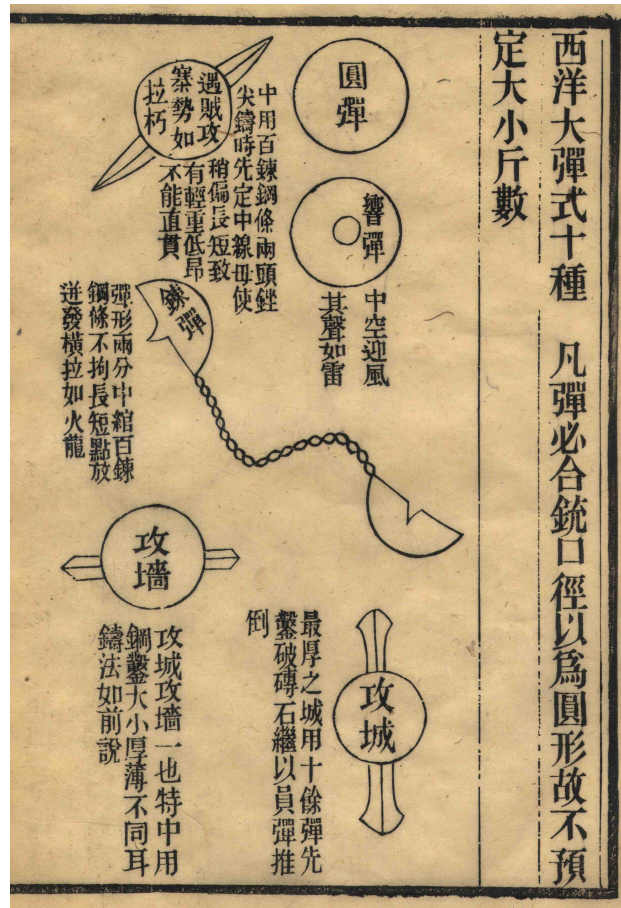 西洋大彈式十種　凡彈必合銃口徑以爲圓形故不預
定大小斤數
圓彈
響彈
中空迎風
其聲如雷
遇賊攻
寨勢如
拉朽
中用百鍊鋼條兩頭銼
尖鑄時先定中線毋使
稍偏長短致
有輕重低昻
不能直貫
鍊彈
彈形兩分中綰百鍊
鋼條不拘長短點放
迸發橫拉如火龍
攻城
最厚之城用十餘彈先
鑿破磚石繼以員彈推
倒
攻墻
攻城攻墻一也特中用
鋼鑿大小厚薄不同耳
鑄法如前說